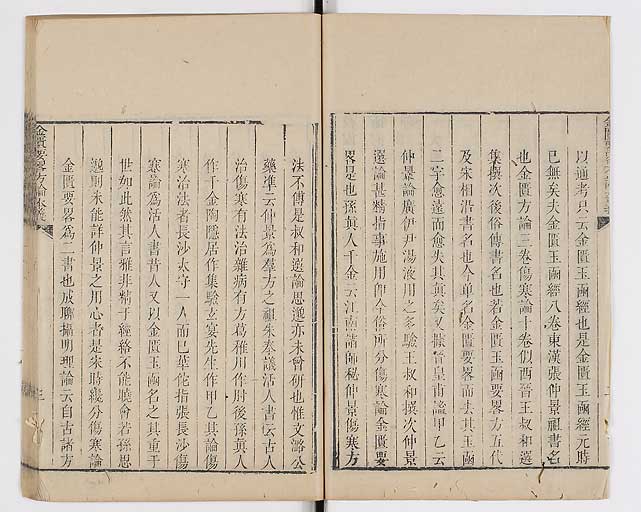 以通考只云金匱玉函經也是金匱玉函經元時
已無矣夫金匱玉函經八卷東漢張仲景祖書名
也金匱方論三卷傷寒論十卷似西晉王叔和選
集撰次後俗傳書名也若金匱玉函要畧方五代
及宋相沿書名也今单名金匱要畧而去其玉函
二字愈遠而愈失其真矣又據晉皇甫謐甲乙云
仲景論廣伊尹湯液用之多驗王叔和撰次仲景
選論甚精指事施用即今俗所分傷寒論金匱要
畧是也孫真人千金云江南諸師秘仲景傷寒方
法不傳是叔和選論思邈亦未曾研也惟文潞公
藥凖云仲景為羣方之祖朱奉議活人書云古人
治傷寒有法治雜病有方葛稚川作肘後孫真人
作千金陶隱居作集驗玄晏先生作甲乙其論傷
寒治法者長沙太守一人而已華佗指張長沙傷
寒論為活人書昔人又以金匱玉函名之其重于
世如此然其言雅非精于經絡不能曉會若孫思
邈則未能詳仲景之用心者是宋時纔分傷寒論
金匱要畧為二書也成聊攝明理論云自古諸方
金匱要畧方論本義
三